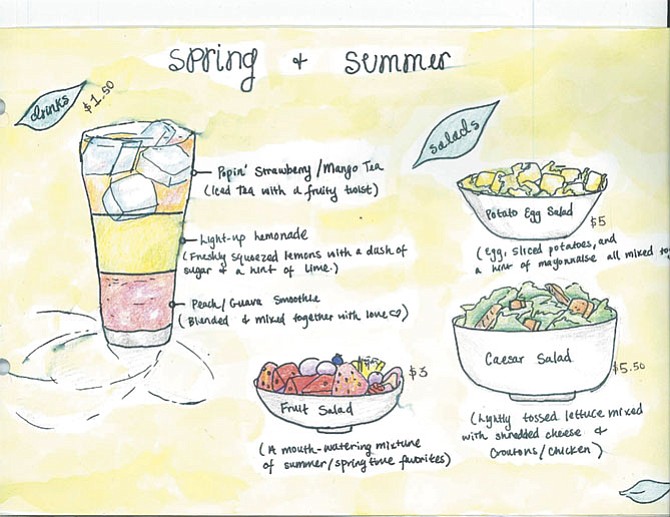 spring + summer
drinks
$1.50
Popin' Strawberry/Mango Tea
(Iced Tea with a fruity twist)
Light-up lemonade
(Freshly squeezed lemons with a dash of
sugar & a hint of lime.)
Peach/Guava Smoothie
(Blended & mixed together with love♡)
salads
Potato Egg Salad
$5
(Egg, sliced potatoes, and
a hint of mayonnaise all mixed to
Caesar Salad
$5.50
(Lightly tossed lettuce mixed
with shredded cheese &
Croutons/Chicken)
Fruit Salad
$3
(A mouth-watering mixture
of summer/springtime favorites)